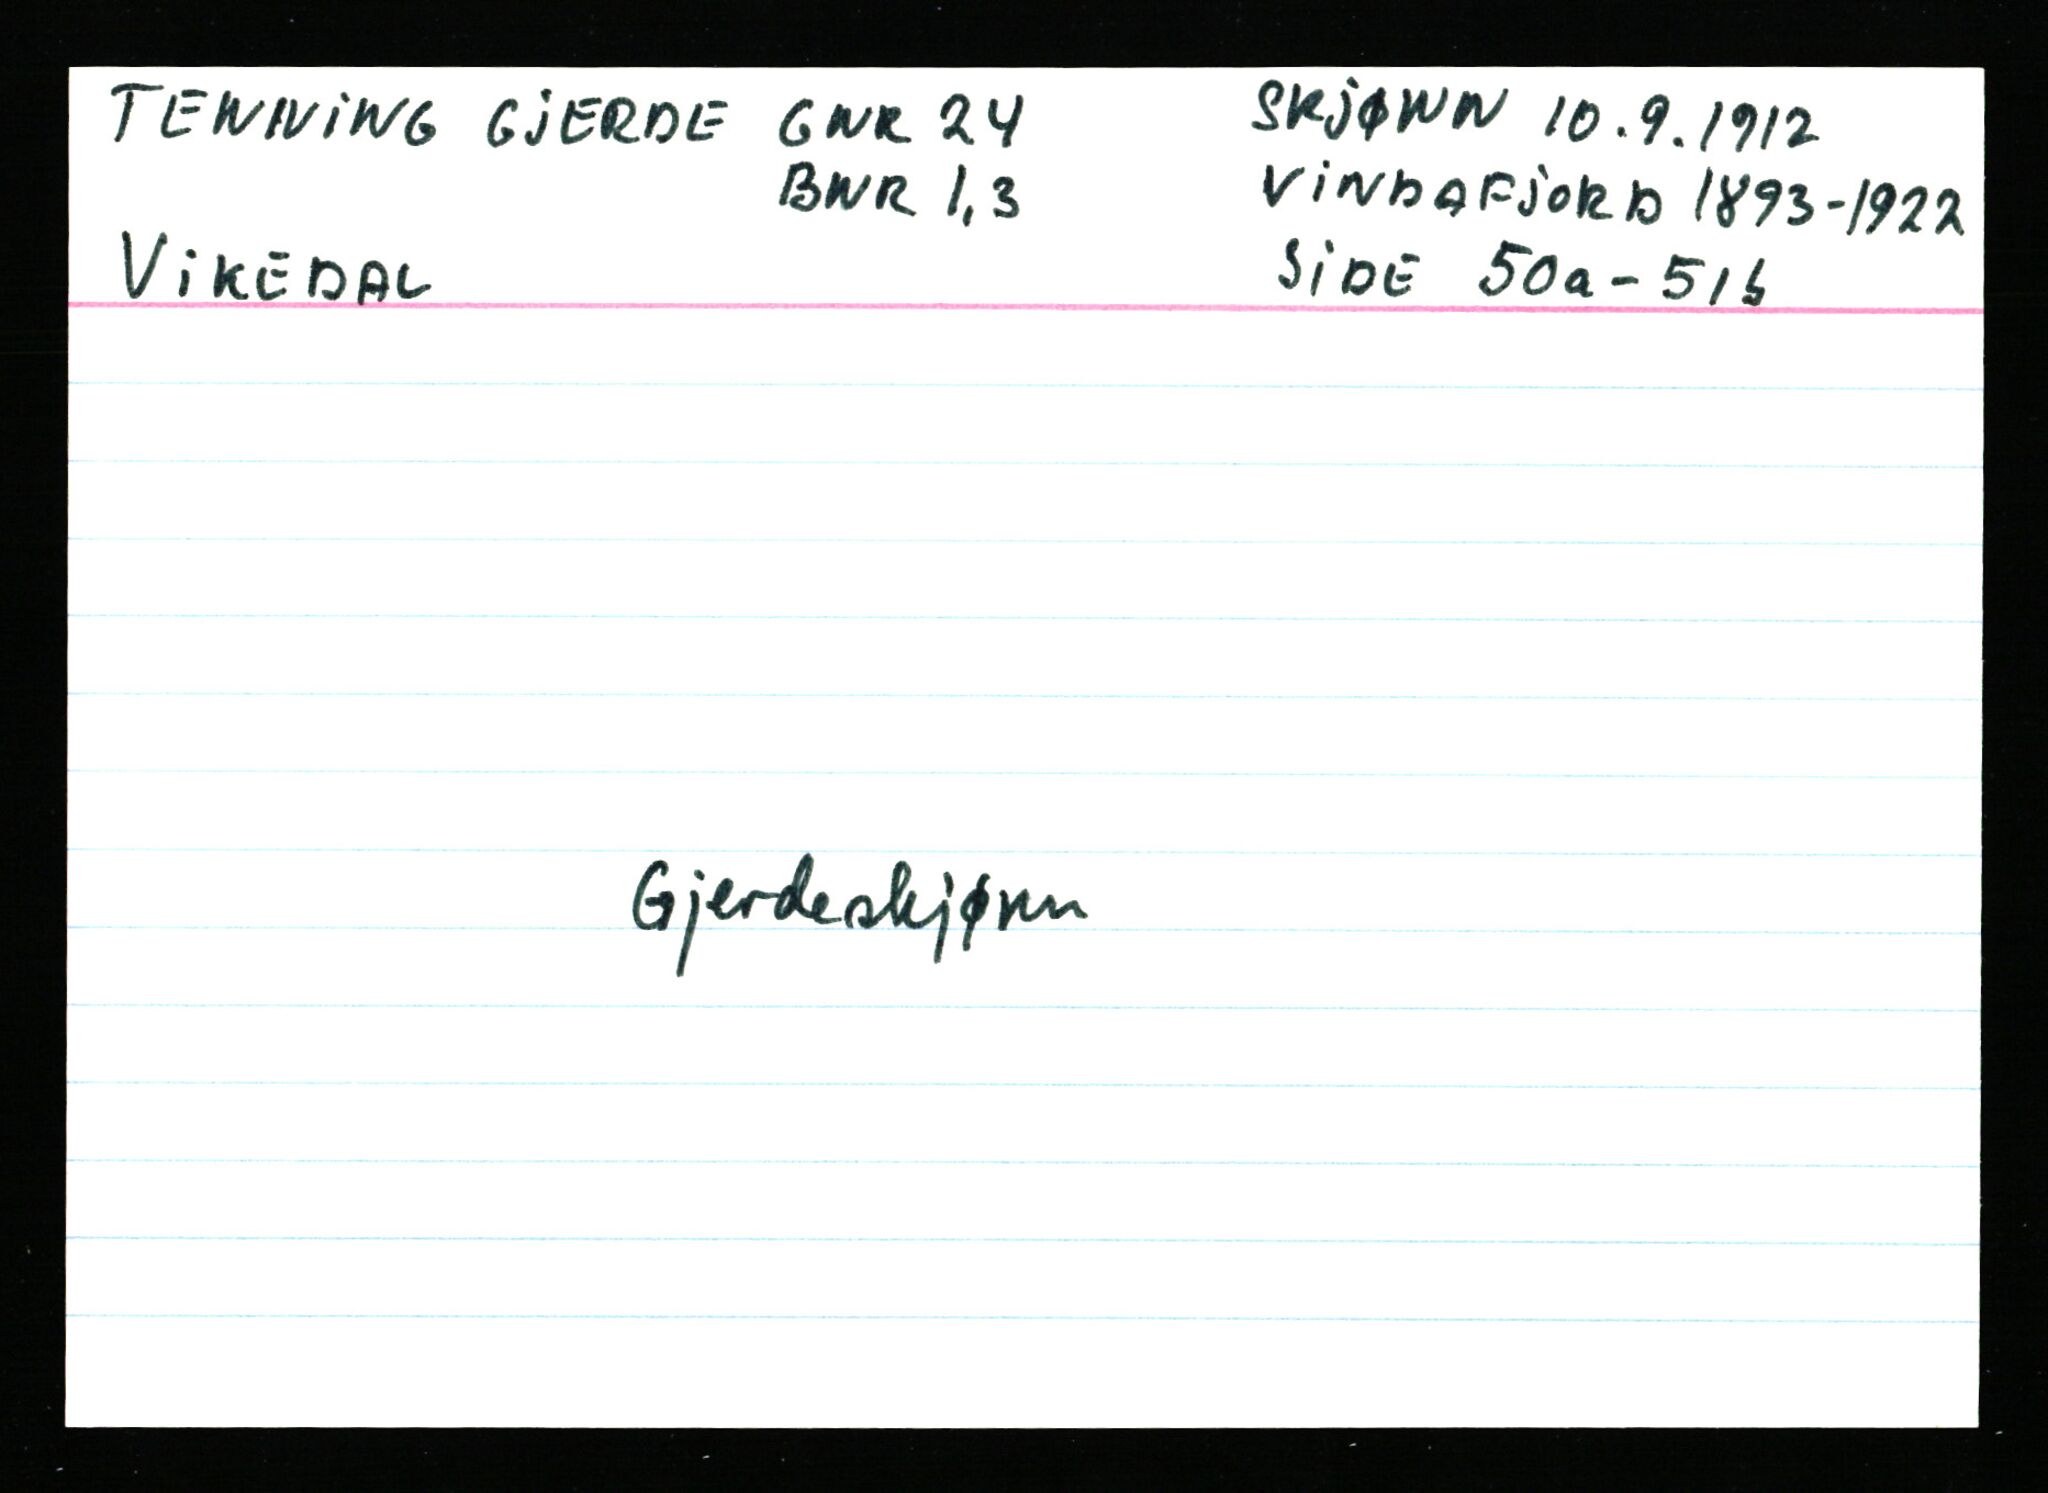 TENNiNG GjERDE GNR 24
BNR 1,3
ViKEDAL
SKjØNN 10.9.1912
ViNDAFjORD 1893-1922
SiDE 50a-51b
Gjerdeskjønn